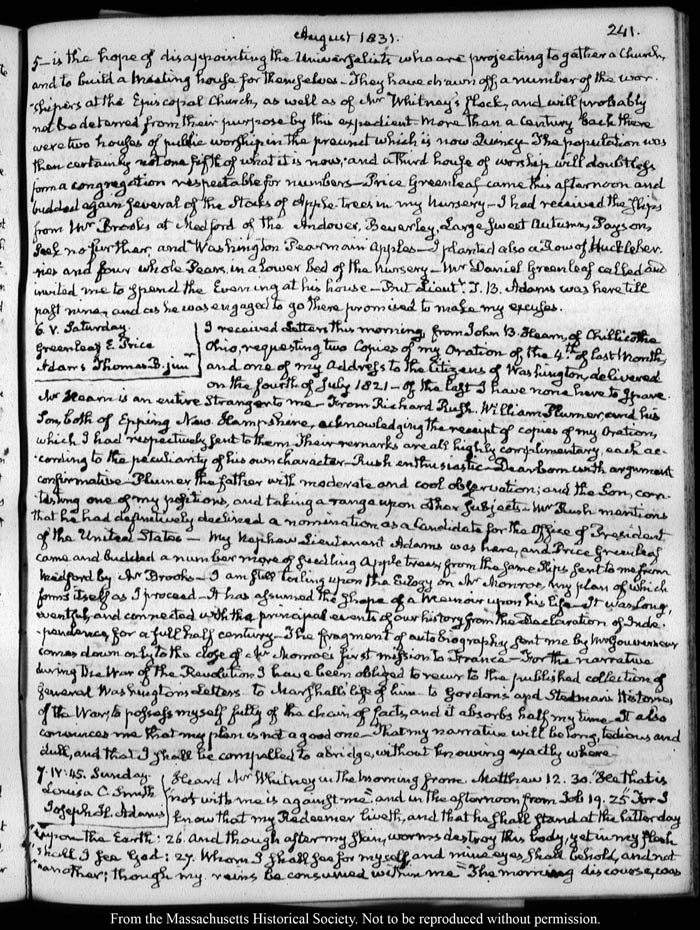 August 1831.
241.
5– is the hope of disappointing the Universalists who are projecting to gather a Church,
and to build a meeting house for themselves– They have drawn off a number of the wor-
shippers at the Episcopal Church, as well as of Mr Whitney's flock, and will probably
not be deterred from their purpose by this expedient– More than a century back there
were two houses of public worship in the precinct which is now Quincy– The population was
then certainly not one fifth of what it is now; and a third house of worship will doubtless
form a congregation respectable for numbers– Price Greenleaf came this afternoon and
budded again several of the Stocks of Apple trees in my Nursery– I had received the slips
from Mr Brooks at Medford of the Andover, Beverley, Large Sweet Autumn, Payson,
Seek no further, and Washington Pearmain Apples– I planted also a Row of Huckleber-
ries and four whole Pears, in a lower bed of the Nursery– Mr Daniel Greenleaf called and
invited me to spend the Evening at his house– But Lieut. T. B. Adams was here till
past nine, and as he was engaged to go there promised to make my excuses.
6. V. Saturday.
Greenleaf E. Price
Adams Thomas B. junr
I received Letters this morning, from John B. Hearn, of Chillicothe
Ohio, requesting two Copies of my Oration of the 4th of last Month,
and one of my Address to the Citizens of Washington, delivered
on the fourth of July 1821– of the last I have none here to spare.
Mr Hearn is an entire Stranger to me– From Richard Rush. William Plumer, and his
Son, both of Epping New Hampshire, acknowledging the receipt of copies of my Oration,
which I had respectively sent to them– Their remarks are all highly complimentary, each ac-
cording to the peculiarity of his own character– Rush enthusiastic– Dearborn with argument
confirmative– Plumer the father with moderate and cool observation; and the Son, con-
testing one of my positions, and taking a range upon other subjects– Mr Rush mentions
that he had definitively declined a nomination as a Candidate for the Office of President
of the United States– My Nephew Lieutenant Adams was here, and Price Greenleaf
came and budded a number more of seedling Apple trees from the same slips sent to me from
Medford by Mr Brooks– I am still toiling upon the Eulogy on Mr Monroe, my plan of which
forms itself as I proceed– It has assumed the shape of a Memoir upon his life– It was long,
eventful, and connected with the principal events of our history from the Declaration of Inde-
pendence, for a full half century– The fragment of autobiography sent me by Mr Gouverneur
comes down only to the close of Mr Monroe's first mission to France– For the narrative
during the War of the Revolution I have been obliged to recur to the published collection of
General Washington's Letters– to Marshall's life of him– to Gordon's and Stedman's Histories
of the War, to possess myself fully of the chain of facts, and it absorbs half my time– It also
convinces me that my plan is not a good one– That my narrative will be long, tedious and
dull, and that I shall be compelled to abridge, without knowing exactly where–
7. IV:45. Sunday.
Louisa C. Smith
Joseph H. Adams
Heard Mr Whitney in the morning from Matthew 12. 30. "He that is
not with me is against me" and in the afternoon from Job 19. 25 "For I
know that my Redeemer liveth, and that he shall stand at the latter day
upon the Earth: 26. And though after my skin, worms destroy this body, yet in my flesh
shall I see God: 27. Whom I shall see for myself, and mine eyes shall behold, and not
another; though my reins be consumed within me" The morning discourse, was
From the Massachusetts Historical Society. Not to be reproduced without permission.